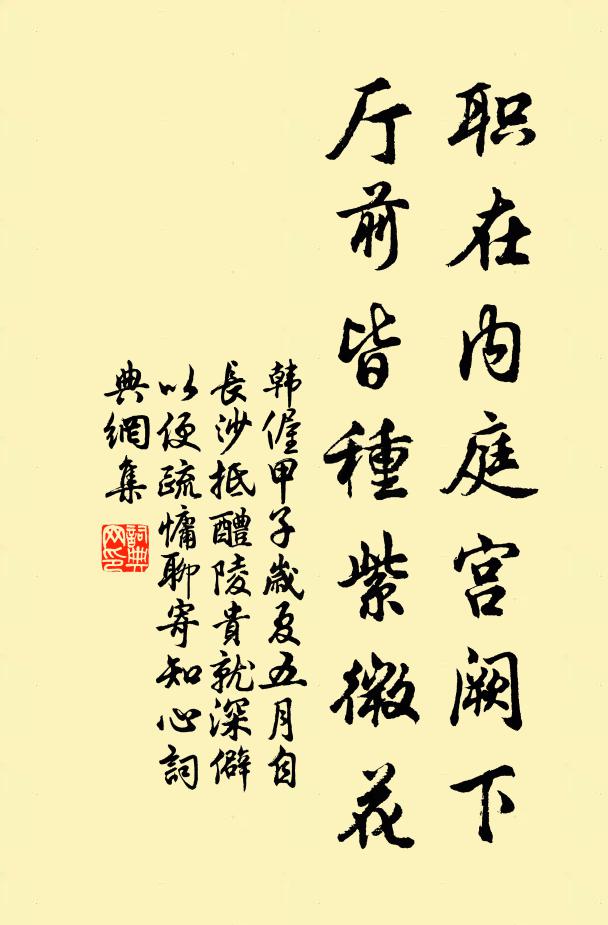 职在内庭宫阙下
厅前皆種紫微花
韩偓甲子歲夏五月自
長沙抵醴陵貴就深僻
以便疏慵聊寄知心詞
典網集
詞典
网印